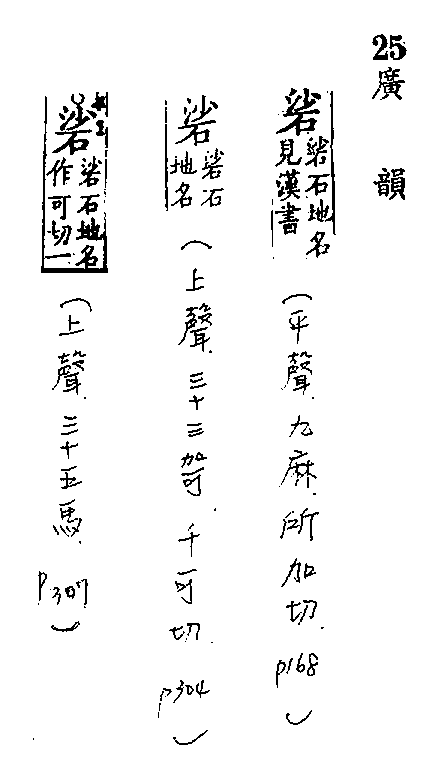 25廣韻
硰硰石地名見漢書(平聲九麻所加切p168)
硰硰石地名(上聲三十三哿千可切p304)
硰硰石地名作可切一(上聲三十五馬p307)